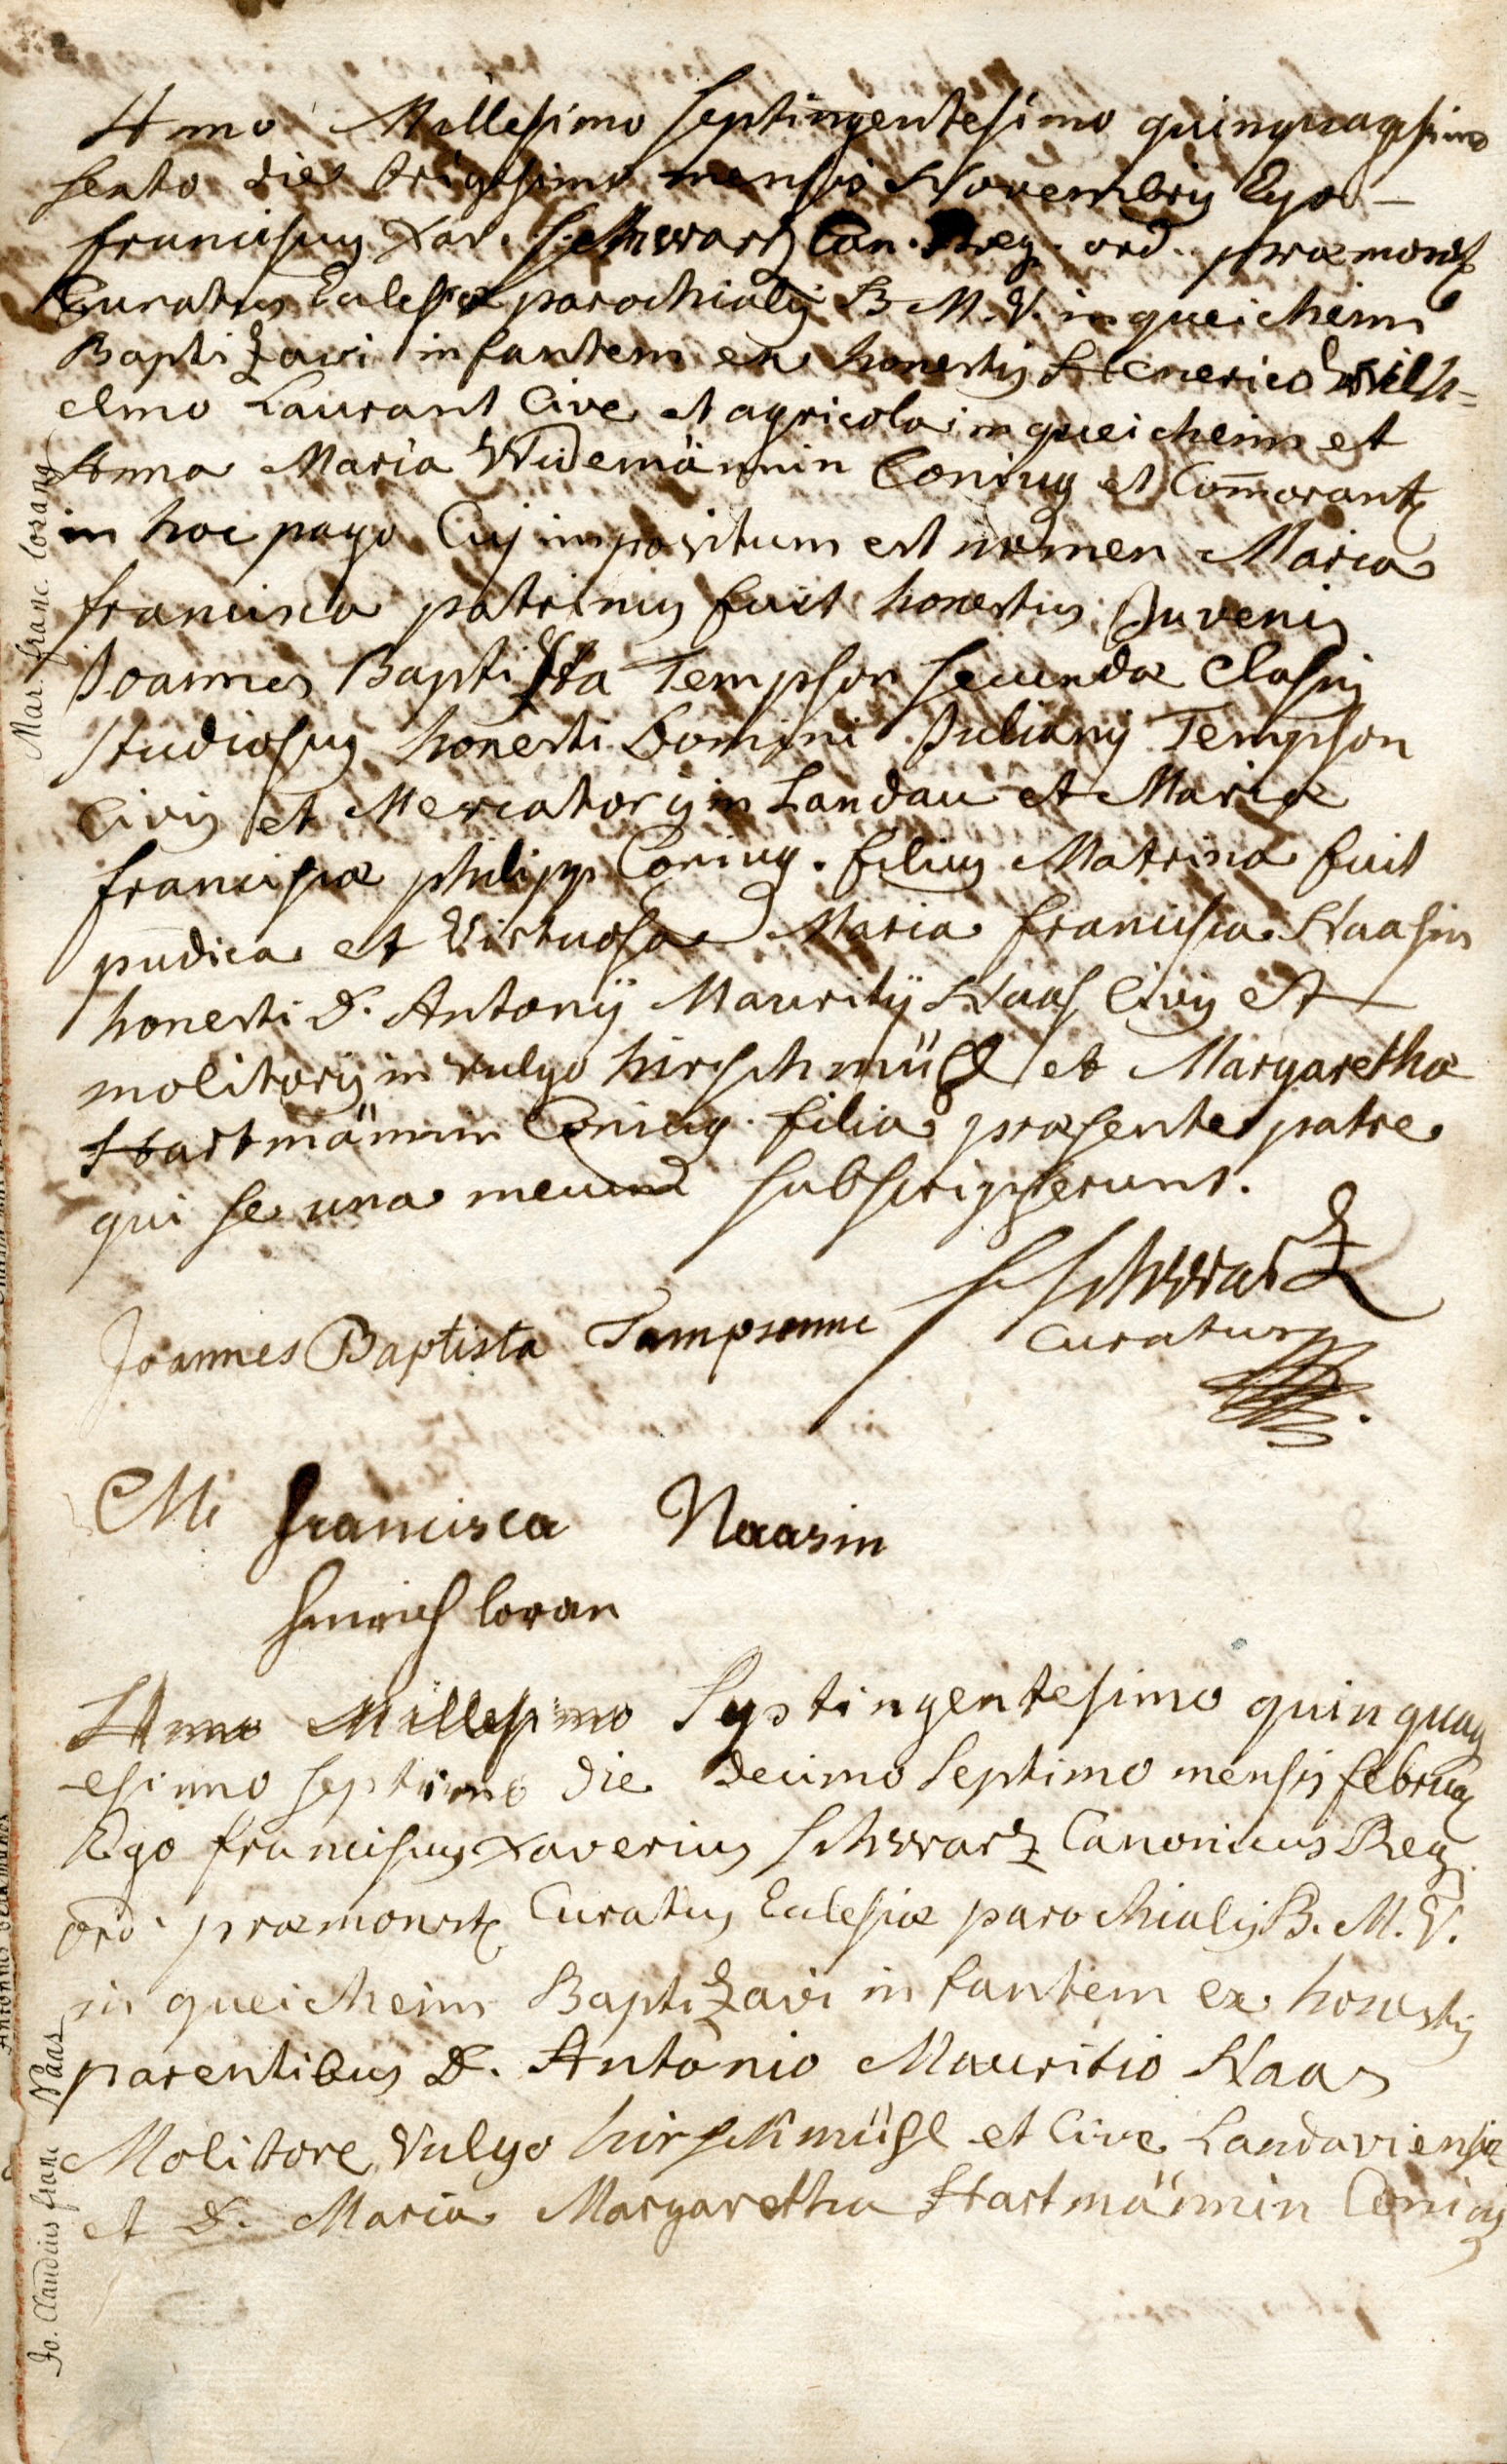 Anno Millesimo septingentesimo quinquagesimo
sexto die trigesimo mensis Novembris Ego
franciscus Xav. Schwartz Can. Reg. ord. præmonst
Curatus Eclesiæ parochialis B. M. V. in queicheim
Baptizavi infantem ex honestis Henerico Wilh=
elmo Laurant Cive et agricola in queicheim et
Anna Maria Widemännin Coniug et Com̄orant
in hoc pago Cuj impositum est nomen Maria
francisca patrinus fuit honestus Juvenis
Joannes Baptista Tempson secundæ Clasis
studiosus honesti Domini Juliani Tempson
Civis et Mercatoris in Landau et Mariæ
franciscæ philipp Coniug. filius Matrina fuit
pudica et Virtuosa Maria francisca Naasin
honesti D. Antonÿ Mauritÿ Naas Civis et
molitoris in vulgo hirschmühl et Margarethæ
Hartmännin Coniug. filia præsente patre
qui se una mecum subscripserunt.
F Schwartz
Curatus
Joannes Baptista Tempsonne
Mi francisca Naasin
Henrich loran
Mar. franc. lorang
Anno Millesimo Septingentesimo quinquag
esimo septimo die decimo septimo mensis februa
Ego franciscus Xaverius Schwartz Canonicus Reg.
ord. præmonst Curatus Eclesiæ parochialis B. M. V.
in queicheim Baptizavi infantem ex honestis
parentibus D. Antonio Mauritio Naas
Molitore Vulgo hirschmühl et Cive Landaviensi
et D. Maria Margaretha Hartmännin Coniug
Jo. Claudius franc Naas